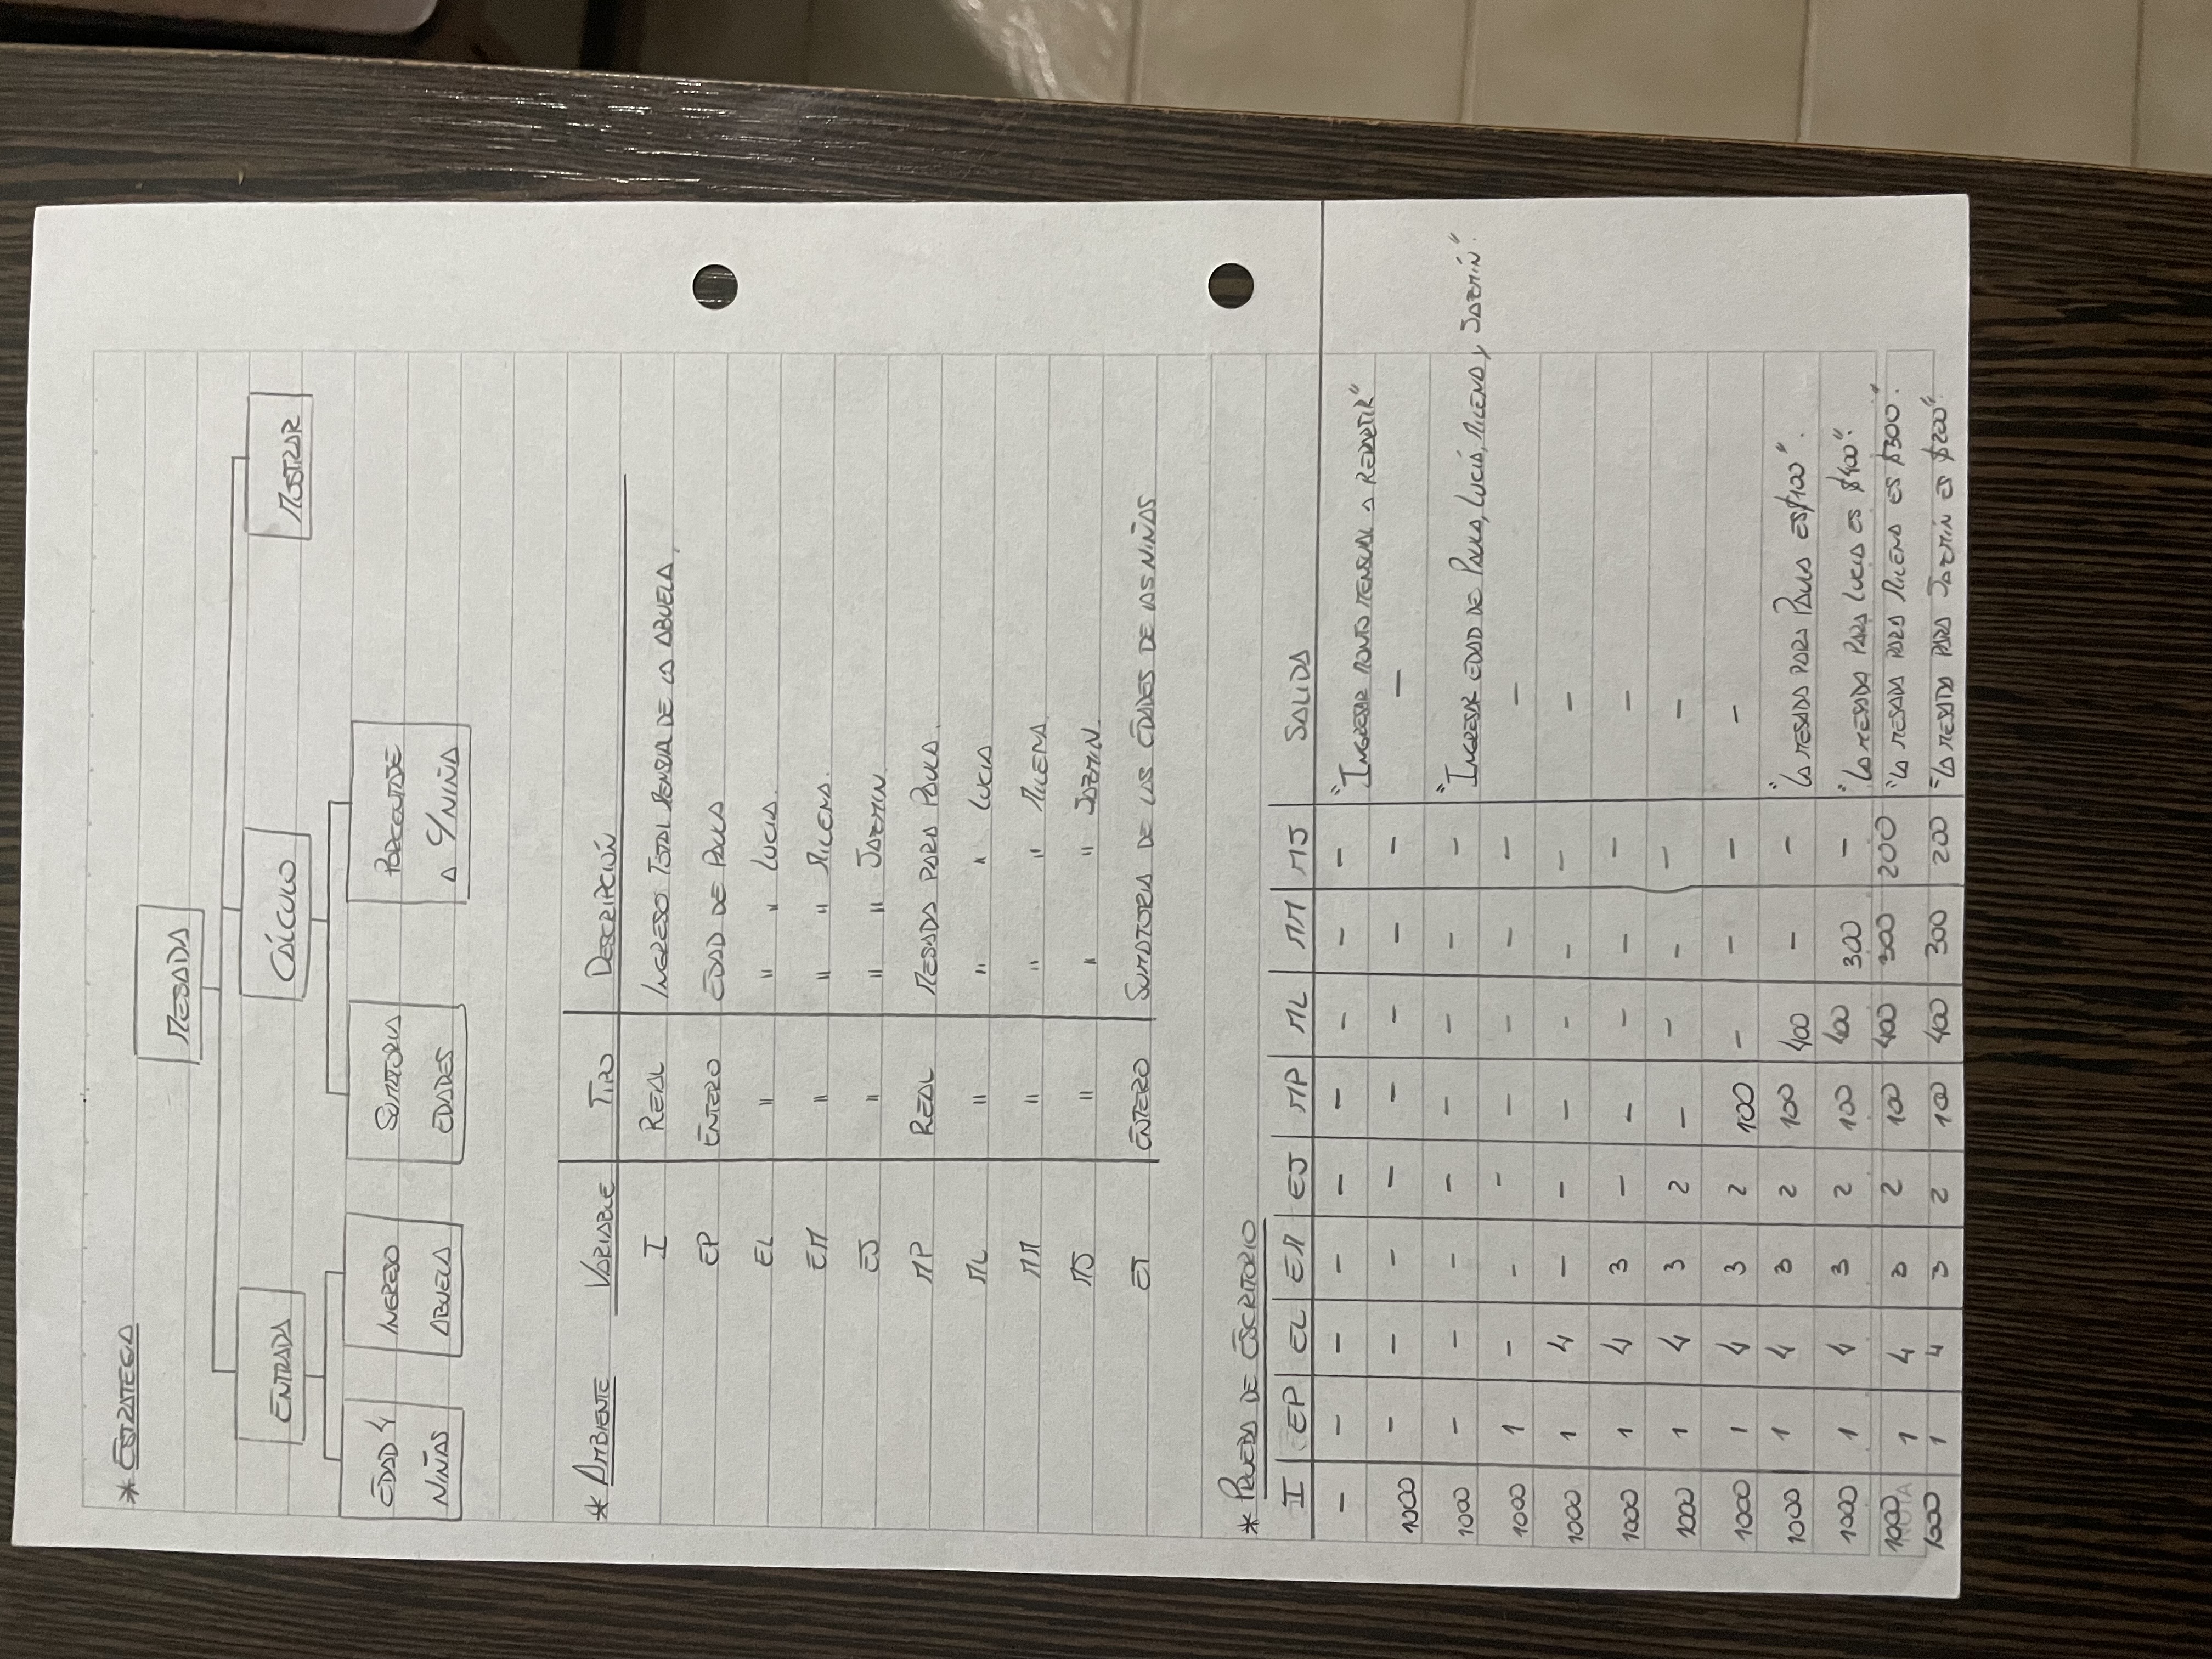 * ESTRATEGIA
MESADA
ENTRADA CÁLCULO MOSTRAR
EDAD 4 INGRESO SUMATORIA PORCENTAJE
NIÑAS ABUELA EDADES A C/NIÑA
* AMBIENTE VARIABLE TIPO DESCRIPCIÓN
I REAL INGRESO TOTAL MENSUAL DE LA ABUELA.
EP ENTERO EDAD DE PAULA
EL " " " LUCIA.
EM " " " MILENA.
EJ " " " JAZMIN.
MP REAL MESADA PARA PAULA.
ML " " " LUCIA
MM " " " MILENA.
MJ " " " JAZMIN.
ET ENTERO SUMATORIA DE LAS EDADES DE LAS NIÑAS
* PRUEBA DE ESCRITORIO
I EP EL EM EJ MP ML MM MJ SALIDA
- - - - - - - - - "INGRESAR MONTO MENSUAL A REPARTIR"
1000 - - - - - - - - -
1000 - - - - - - - - "INGRESAR EDAD DE PAULA, LUCIA, MILENA y JAZMÍN".
1000 1 - - - - - - - -
1000 1 4 - - - - - - -
1000 1 4 3 - - - - - -
1000 1 4 3 2 - - - - -
1000 1 4 3 2 100 - - - -
1000 1 4 3 2 100 400 - - "LA MESADA PARA PAULA ES $100".
1000 1 4 3 2 100 400 300 - "LA MESADA PARA LUCIA ES $400".
1000 1 4 3 2 100 400 300 200 "LA MESADA PARA MILENA ES $300".
NOTA
1000 1 4 3 2 100 400 300 200 "LA MESADA PARA JAZMÍN ES $200".